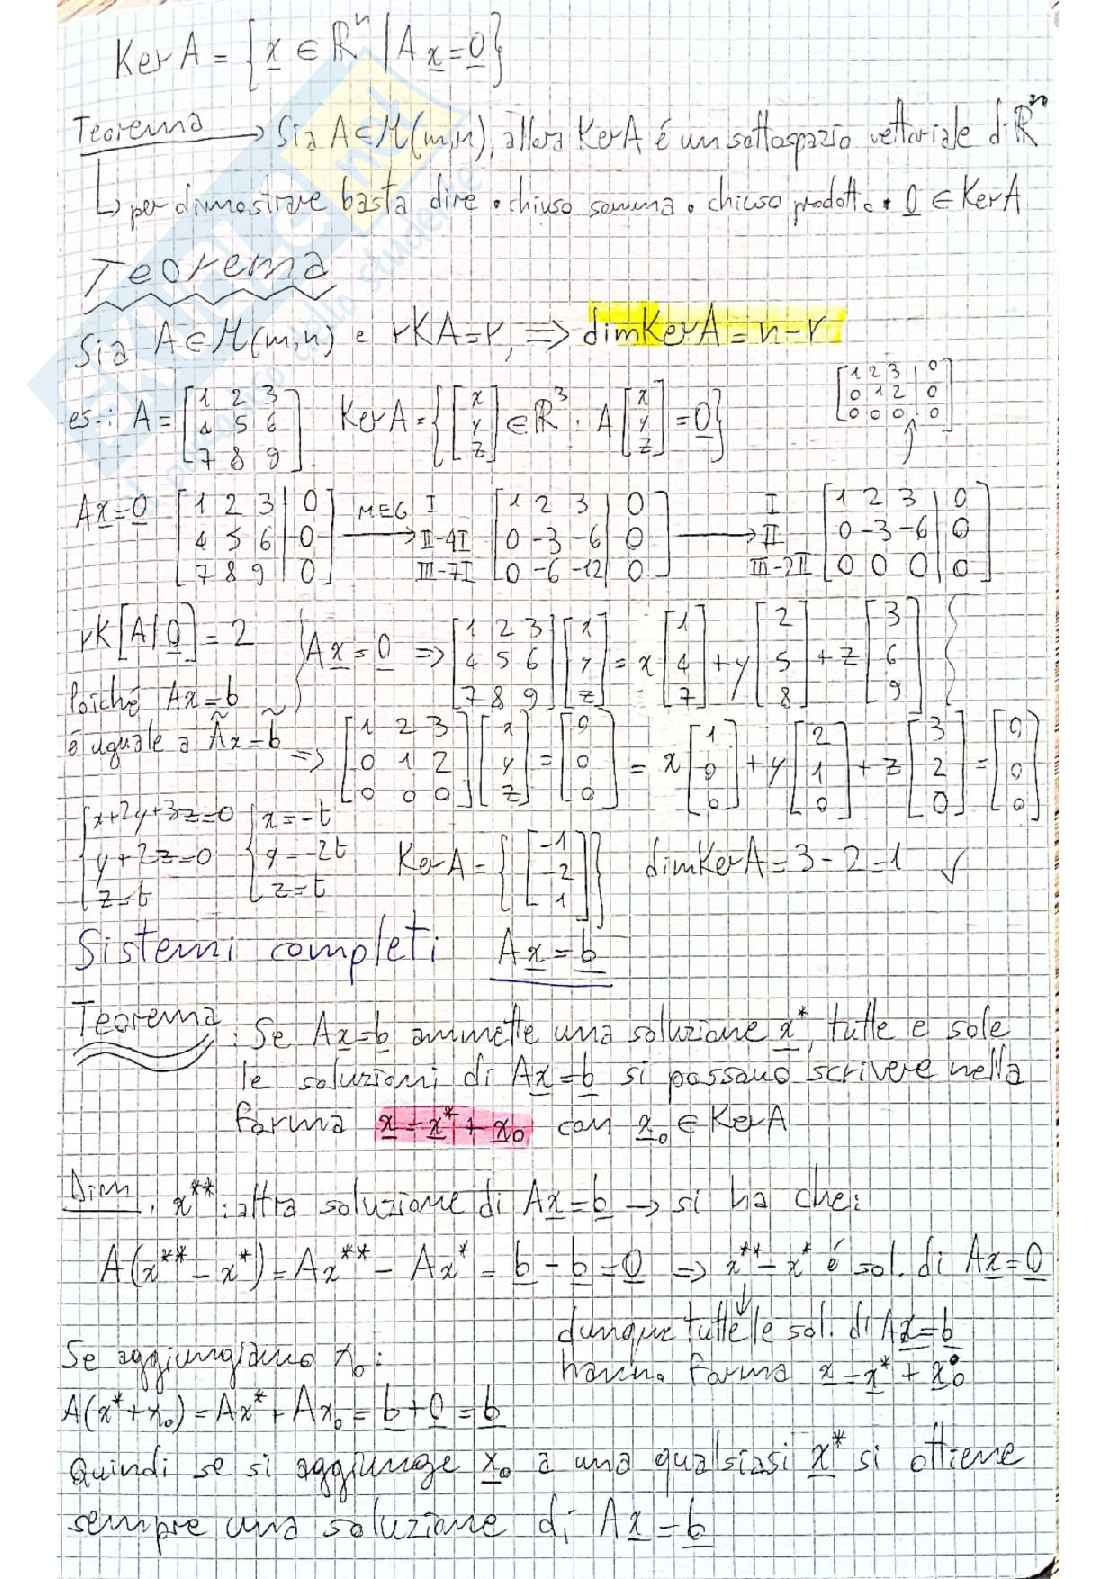 Ker A = { x ∈ ℝⁿ | A x = 0 }
Teorema → Sia A ∈ M(m,n), allora Ker A é un sottospazio vettoriale di ℝⁿ
↳ per dimostrare basta dire • chiuso somma • chiuso prodotto • 0 ∈ Ker A
Teorema
Sia A ∈ M(m,n) e rK A = r, ⇒ dim Ker A = n - r
es.: A = [1 2 3; 4 5 6; 7 8 9] Ker A = { [x; y; z] ∈ ℝ³ : A [x; y; z] = 0 } [1 2 3 | 0; 0 1 2 0; 0 0 0 | 0]
Ax = 0 [1 2 3 | 0; 4 5 6 | 0; 7 8 9 | 0] MEG → I II-4I III-7I [1 2 3 | 0; 0 -3 -6 | 0; 0 -6 -12 | 0] → I II III-2II [1 2 3 | 0; 0 -3 -6 | 0; 0 0 0 | 0]
rK [A | 0] = 2 { Ax = 0 ⇒ [1 2 3; 4 5 6; 7 8 9] [x; y; z] = x [1; 4; 7] + y [2; 5; 8] + z [3; 6; 9] {
Poiché Ax = b
é uguale a Ãx = b̃ ⇒ [1 2 3; 0 1 2; 0 0 0] [x; y; z] = [0; 0; 0] = x [1; 0; 0] + y [2; 1; 0] + z [3; 2; 0] = [0; 0; 0]
{ x+2y+3z=0 y+2z=0 z=t { x=-t y=-2t z=t Ker A = { [-1; -2; 1] } dim Ker A = 3 - 2 = 1 ✓
Sistemi completi Ax = b
Teorema: Se Ax=b ammette una soluzione x*, tutte e sole
le soluzioni di Ax=b si possono scrivere nella
forma x = x* + x₀ con x₀ ∈ Ker A
Dim. x**: altra soluzione di Ax = b → si ha che:
A(x** - x*) = Ax** - Ax* = b - b = 0 ⇒ x** - x* é sol. di Ax = 0
↓
dunque tutte le sol. di Ax = b
hanno forma x = x* + x₀
Se aggiungiamo x₀:
A(x* + x₀) = Ax* + Ax₀ = b + 0 = b
Quindi se si aggiunge x₀ a una qualsiasi x* si ottiene
sempre una soluzione di Ax = b